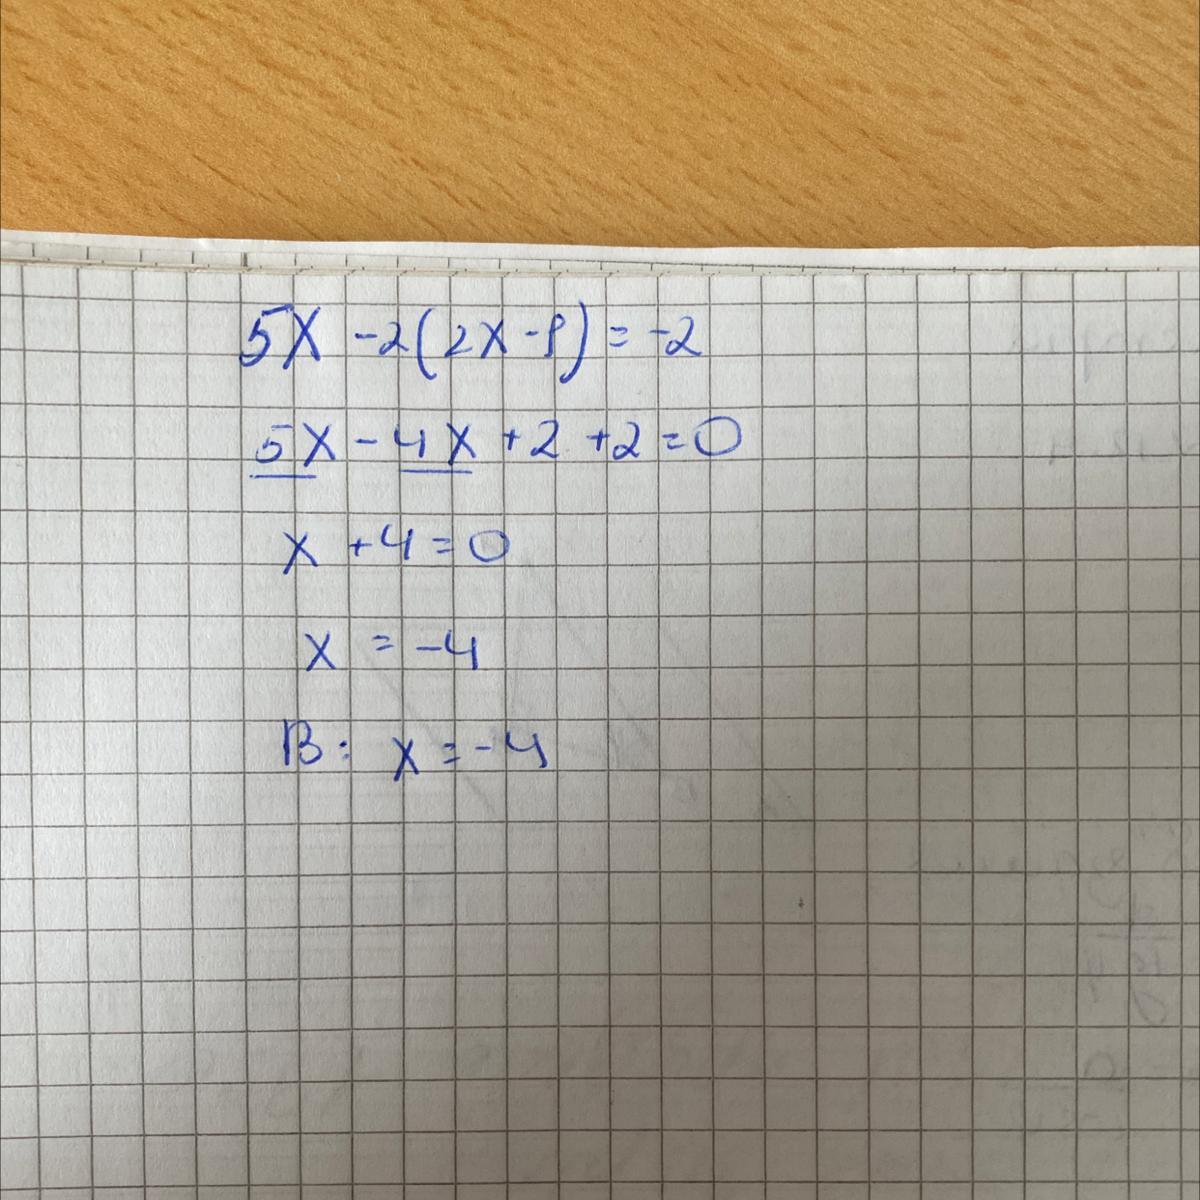 5x - 2(2x - 1) = -2
5x - 4x + 2 + 2 = 0
x + 4 = 0
x = -4
B: x = -4